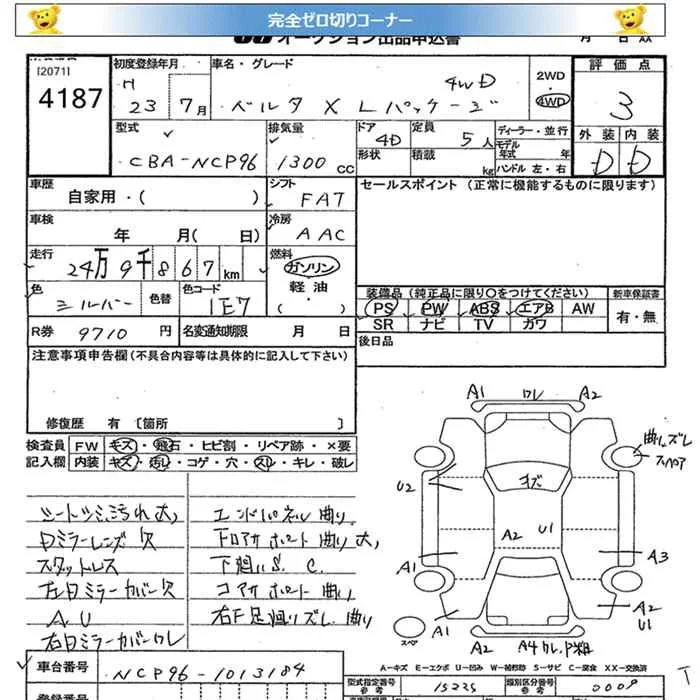 完全ゼロ切りコーナー
オークション出品申込書
[2071]
4187
初度登録年月
H 23 7月
車名・グレード
ベルタ X Lパッケージ 4WD
2WD・4WD
評価点
3
外装 内装
D D
型式
CBA-NCP96
排気量
1300 CC
ドア
4D
形状
定員
5人
積載
kg
ディーラー・並行
モデル年式 年
ハンドル 左・右
車歴
自家用・( )
シフト
FAT
セールスポイント (正常に機能するものに限ります)
車検
年 月( 日)
冷房
AAC
走行
24万9千867km
燃料
ガソリン
軽油
( )
色
シルバー
色替
色コード
1E7
装備品 (純正品に限り○をつけてください)
PS PW ABS エアB AW
SR ナビ TV カワ
新車保証書
有・無
R券 9710円
名変通知期限 月 日
後日品
注意事項申告欄(不具合内容等は具体的に記入して下さい)
修復歴 有 [箇所 ]
検査員記入欄
FW キズ・飛石・ヒビ割・リペア跡・×要
内装 キズ・汚れ・コゲ・穴・スレ・キレ・破レ
シートシミ、汚れ大
スタットレス
左ロミラーカバー欠
A.U
右ロミラーカバーワレ
エンドパネル曲り
下廻りS.C.
コアサポート曲り
右F足廻りズレ、曲り
A1 ワレ A2
曲り、ズレ
スペア
U2
キズ
A2 U1
A1
A3
A1
A2
U1
スペ
A2 A4 ワレ、P粗
A-キズ E-エクボ U-凹み W-補修跡 S-サビ C-腐食 XX-交換済
車台番号
NCP96-1013184
登録番号
型式指定番号
参考
15225
類別区分番号
参考
0009